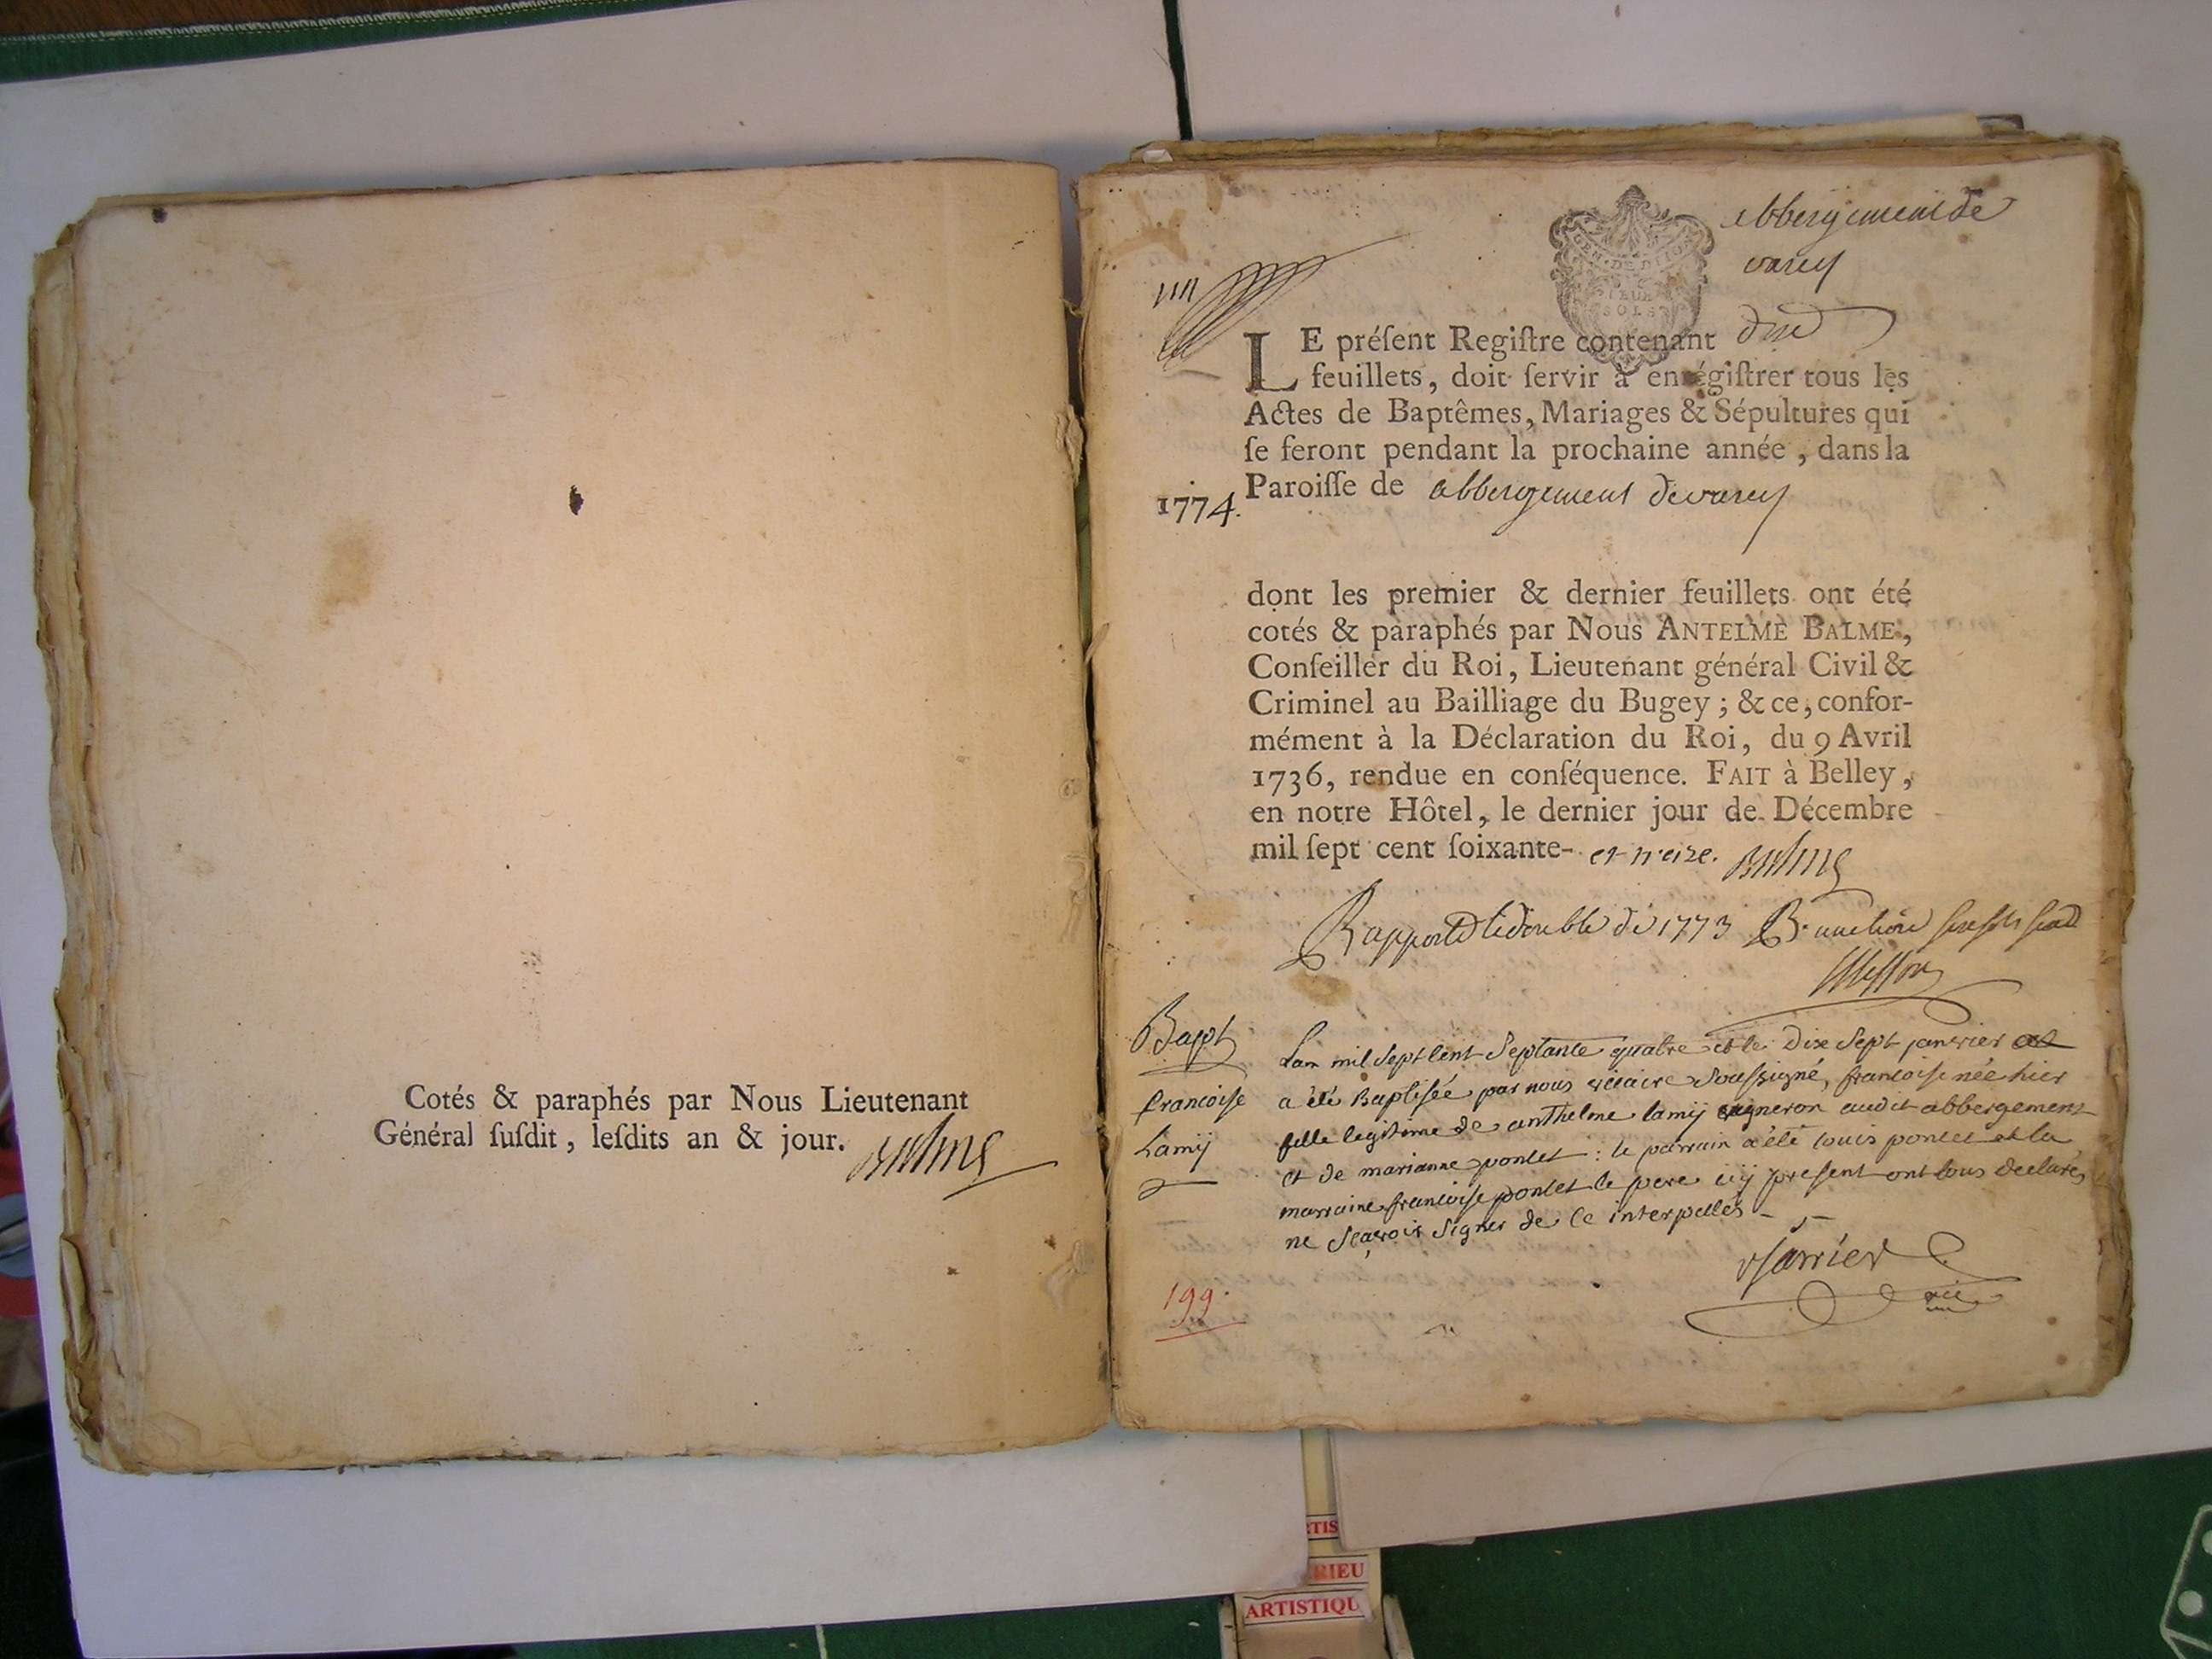 Cotés & paraphés par Nous Lieutenant
Général ſuſdit, leſdits an & jour. Balme
abbergement de
varey
GEN. DE DIJON
SOLS
LE préſent Regiſtre contenant dix
feuillets, doit ſervir à enrégiſtrer tous les
Actes de Baptêmes, Mariages & Sépultures qui
ſe feront pendant la prochaine année, dans la
1774. Paroiſſe de abbergement de varey
dont les premier & dernier feuillets ont été
cotés & paraphés par Nous ANTELME BALME,
Conſeiller du Roi, Lieutenant général Civil &
Criminel au Bailliage du Bugey; & ce, confor-
mément à la Déclaration du Roi, du 9 Avril
1736, rendue en conſéquence. FAIT à Belley,
en notre Hôtel, le dernier jour de Décembre
mil ſept cent ſoixante- et treize. Balme
Rapporté le double de 1773
Bapt
francoise
Lamij
Lan mil sept cent septante quatre et le dix sept janvier
a été baptisée par nous vicaire soussigné, francoise née hier
fille legitime de anthelme lamij vigneron audit abbergement
et de marianne poncet : le parrain a été louis poncet et la
marraine francoise poncet le pere icij present ont tous declarés
ne sçavoir signer de ce interpellés
Jarrier
vic
199.
ARTISTIQU